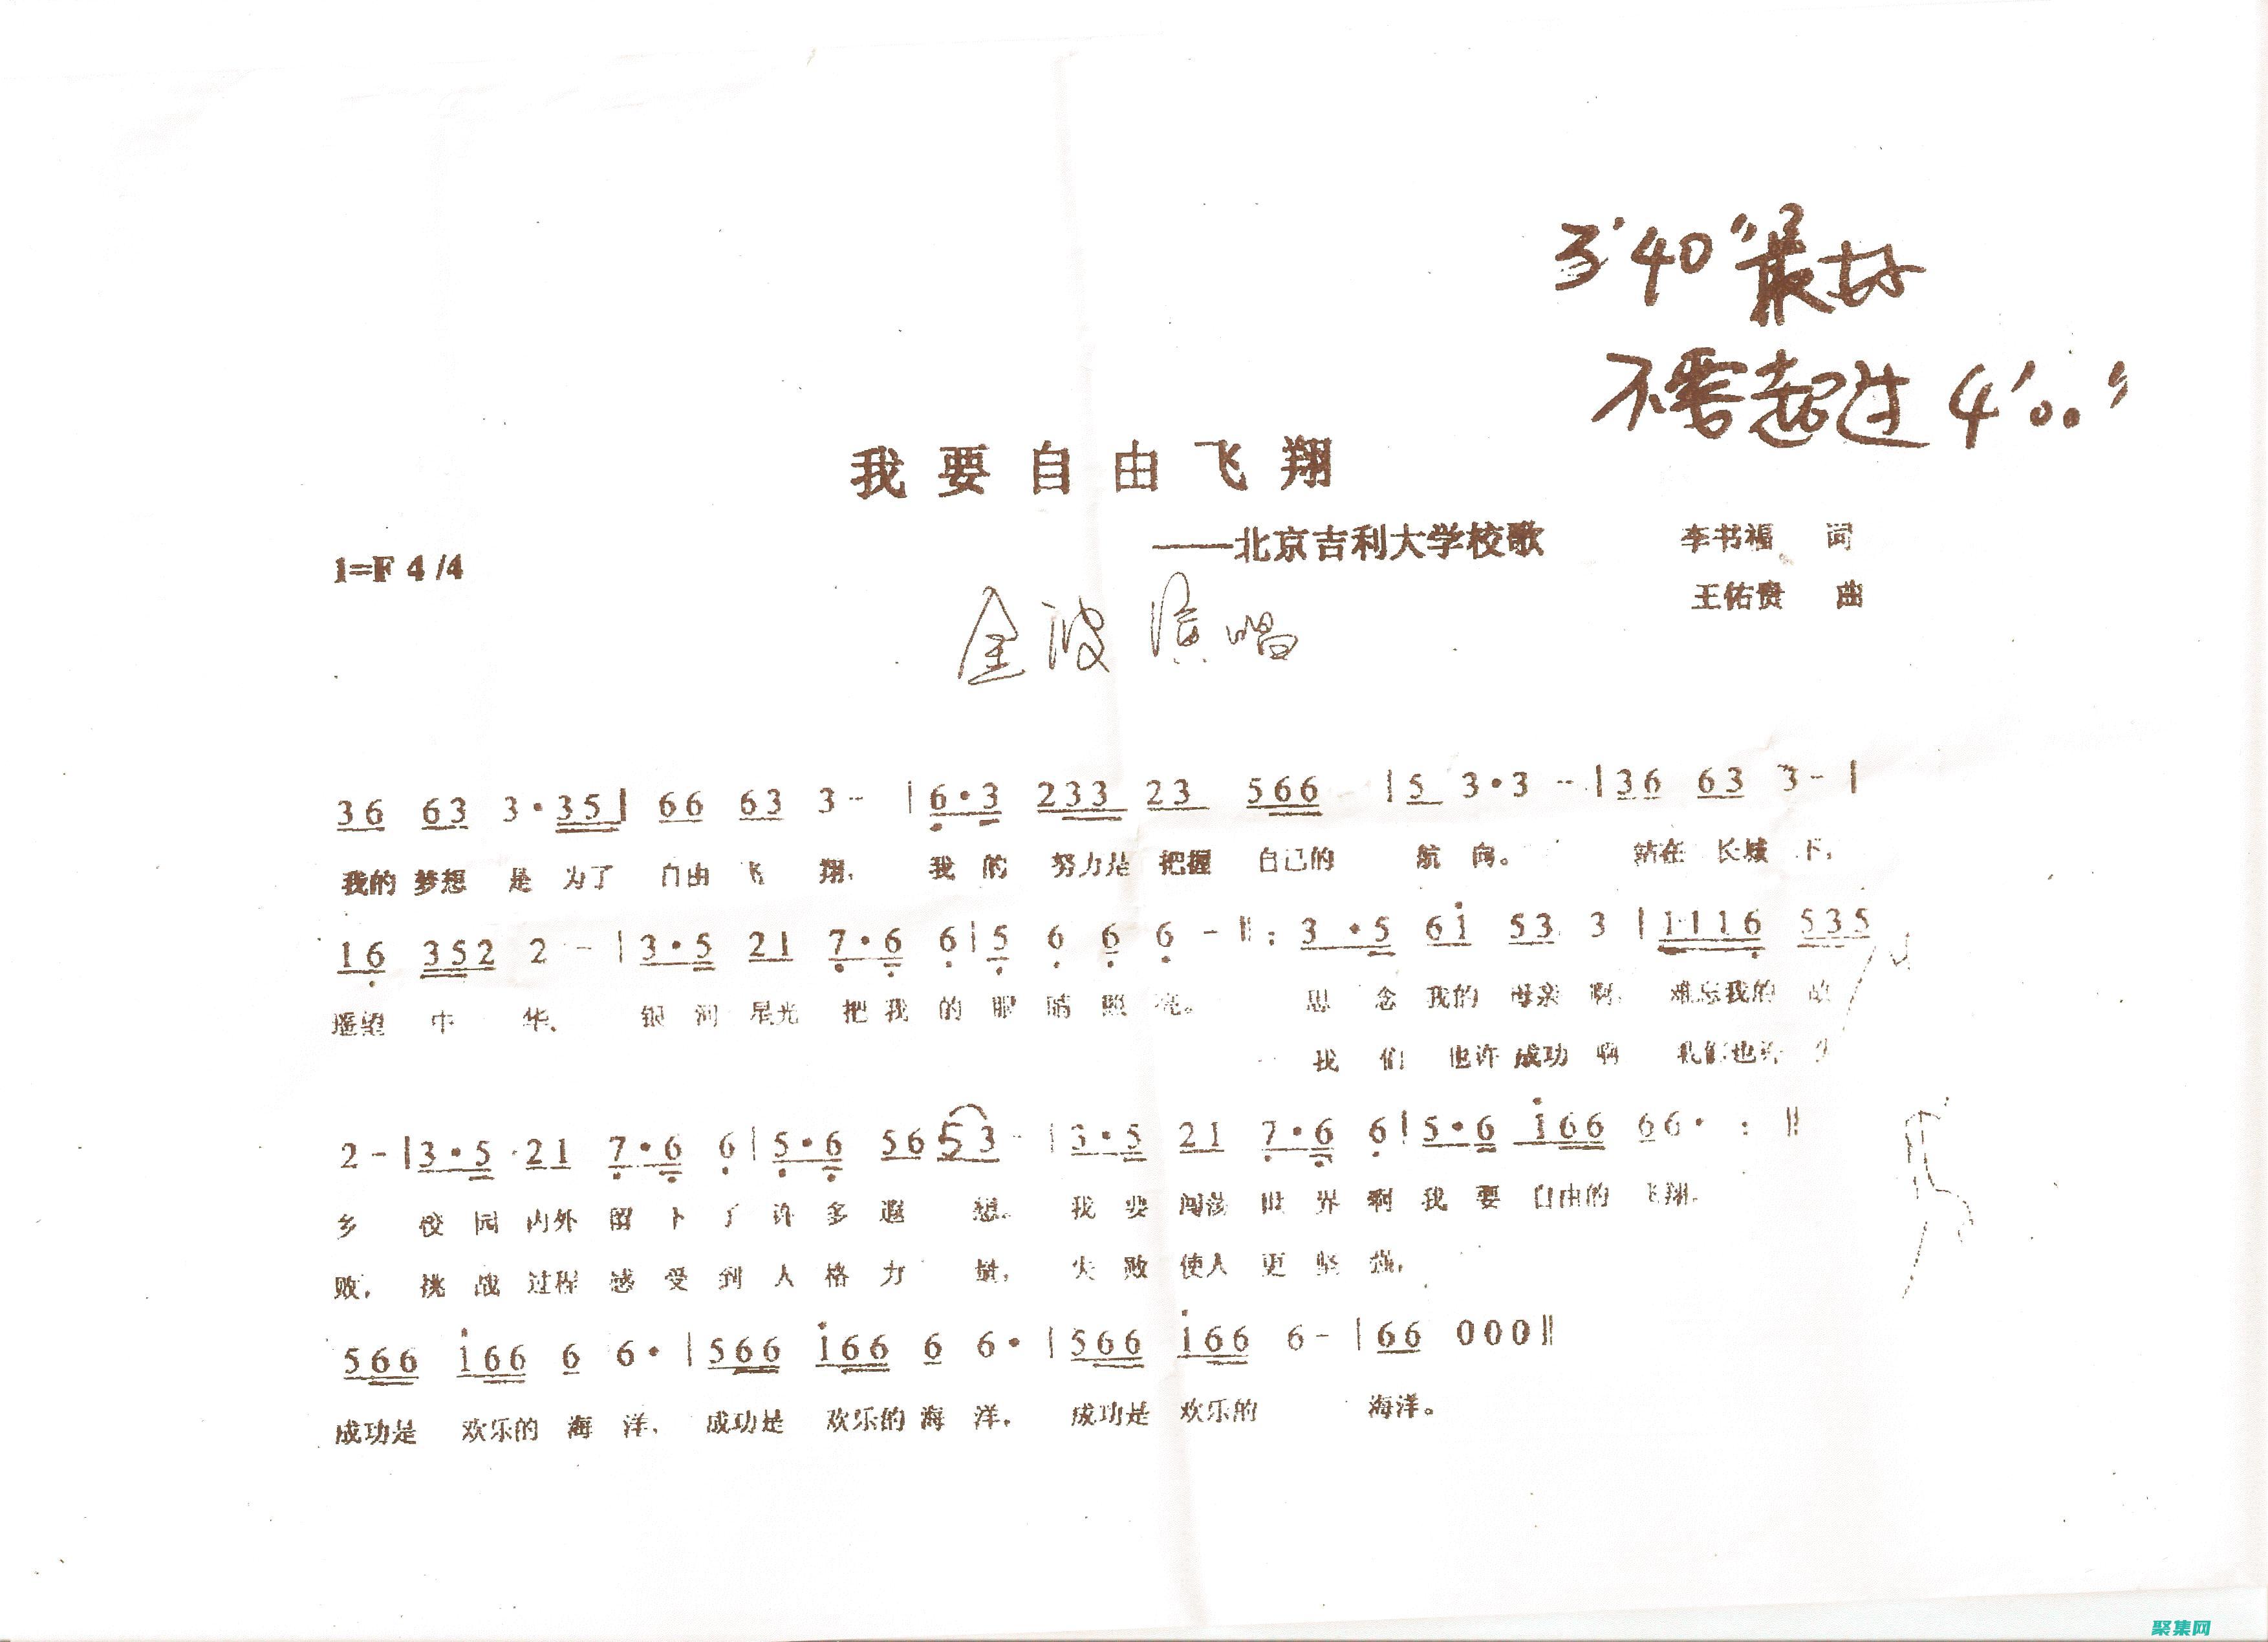 3'40"最好
不要超过4'00"
我要自由飞翔
——北京吉利大学校歌 李书福 词
1=F 4/4 王佑贵 曲
金波 演唱
36 63 3·35| 66 63 3- |6·3 233 23 566 |5 3·3 -|36 63 3-|
我的梦想 是 为了 自由 飞 翔, 我 的 努力是 把握 自己的 航 向。 站在 长城 下,
16 352 2 - |3·5 21 7·6 6|5 6 6 6 -‖: 3·5 6i 53 3 |1116 535
遥望 中 华、 银 河 星光 把 我 的 眼 睛 照 亮。 思 念 我的 母亲 啊, 难忘我的 故
我 们 也许 成功 啊 我们也许 失
2-|3·5 21 7·6 6|5·6 56 53 - |3·5 21 7·6 6|5·6 i66 66· :‖
乡 校 园 内外 留 下 了 许 多 遐 想。 我 要 闯荡 世 界 啊 我 要 自由的 飞翔。
败, 挑 战 过程 感 受 到 人 格 力 量, 失 败 使人 更 坚 强,
566 i66 6 6·|566 i66 6 6·|566 i66 6-|66 000‖
成功是 欢乐的 海 洋, 成功是 欢乐的 海 洋, 成功是 欢乐的 海洋。
聚集网